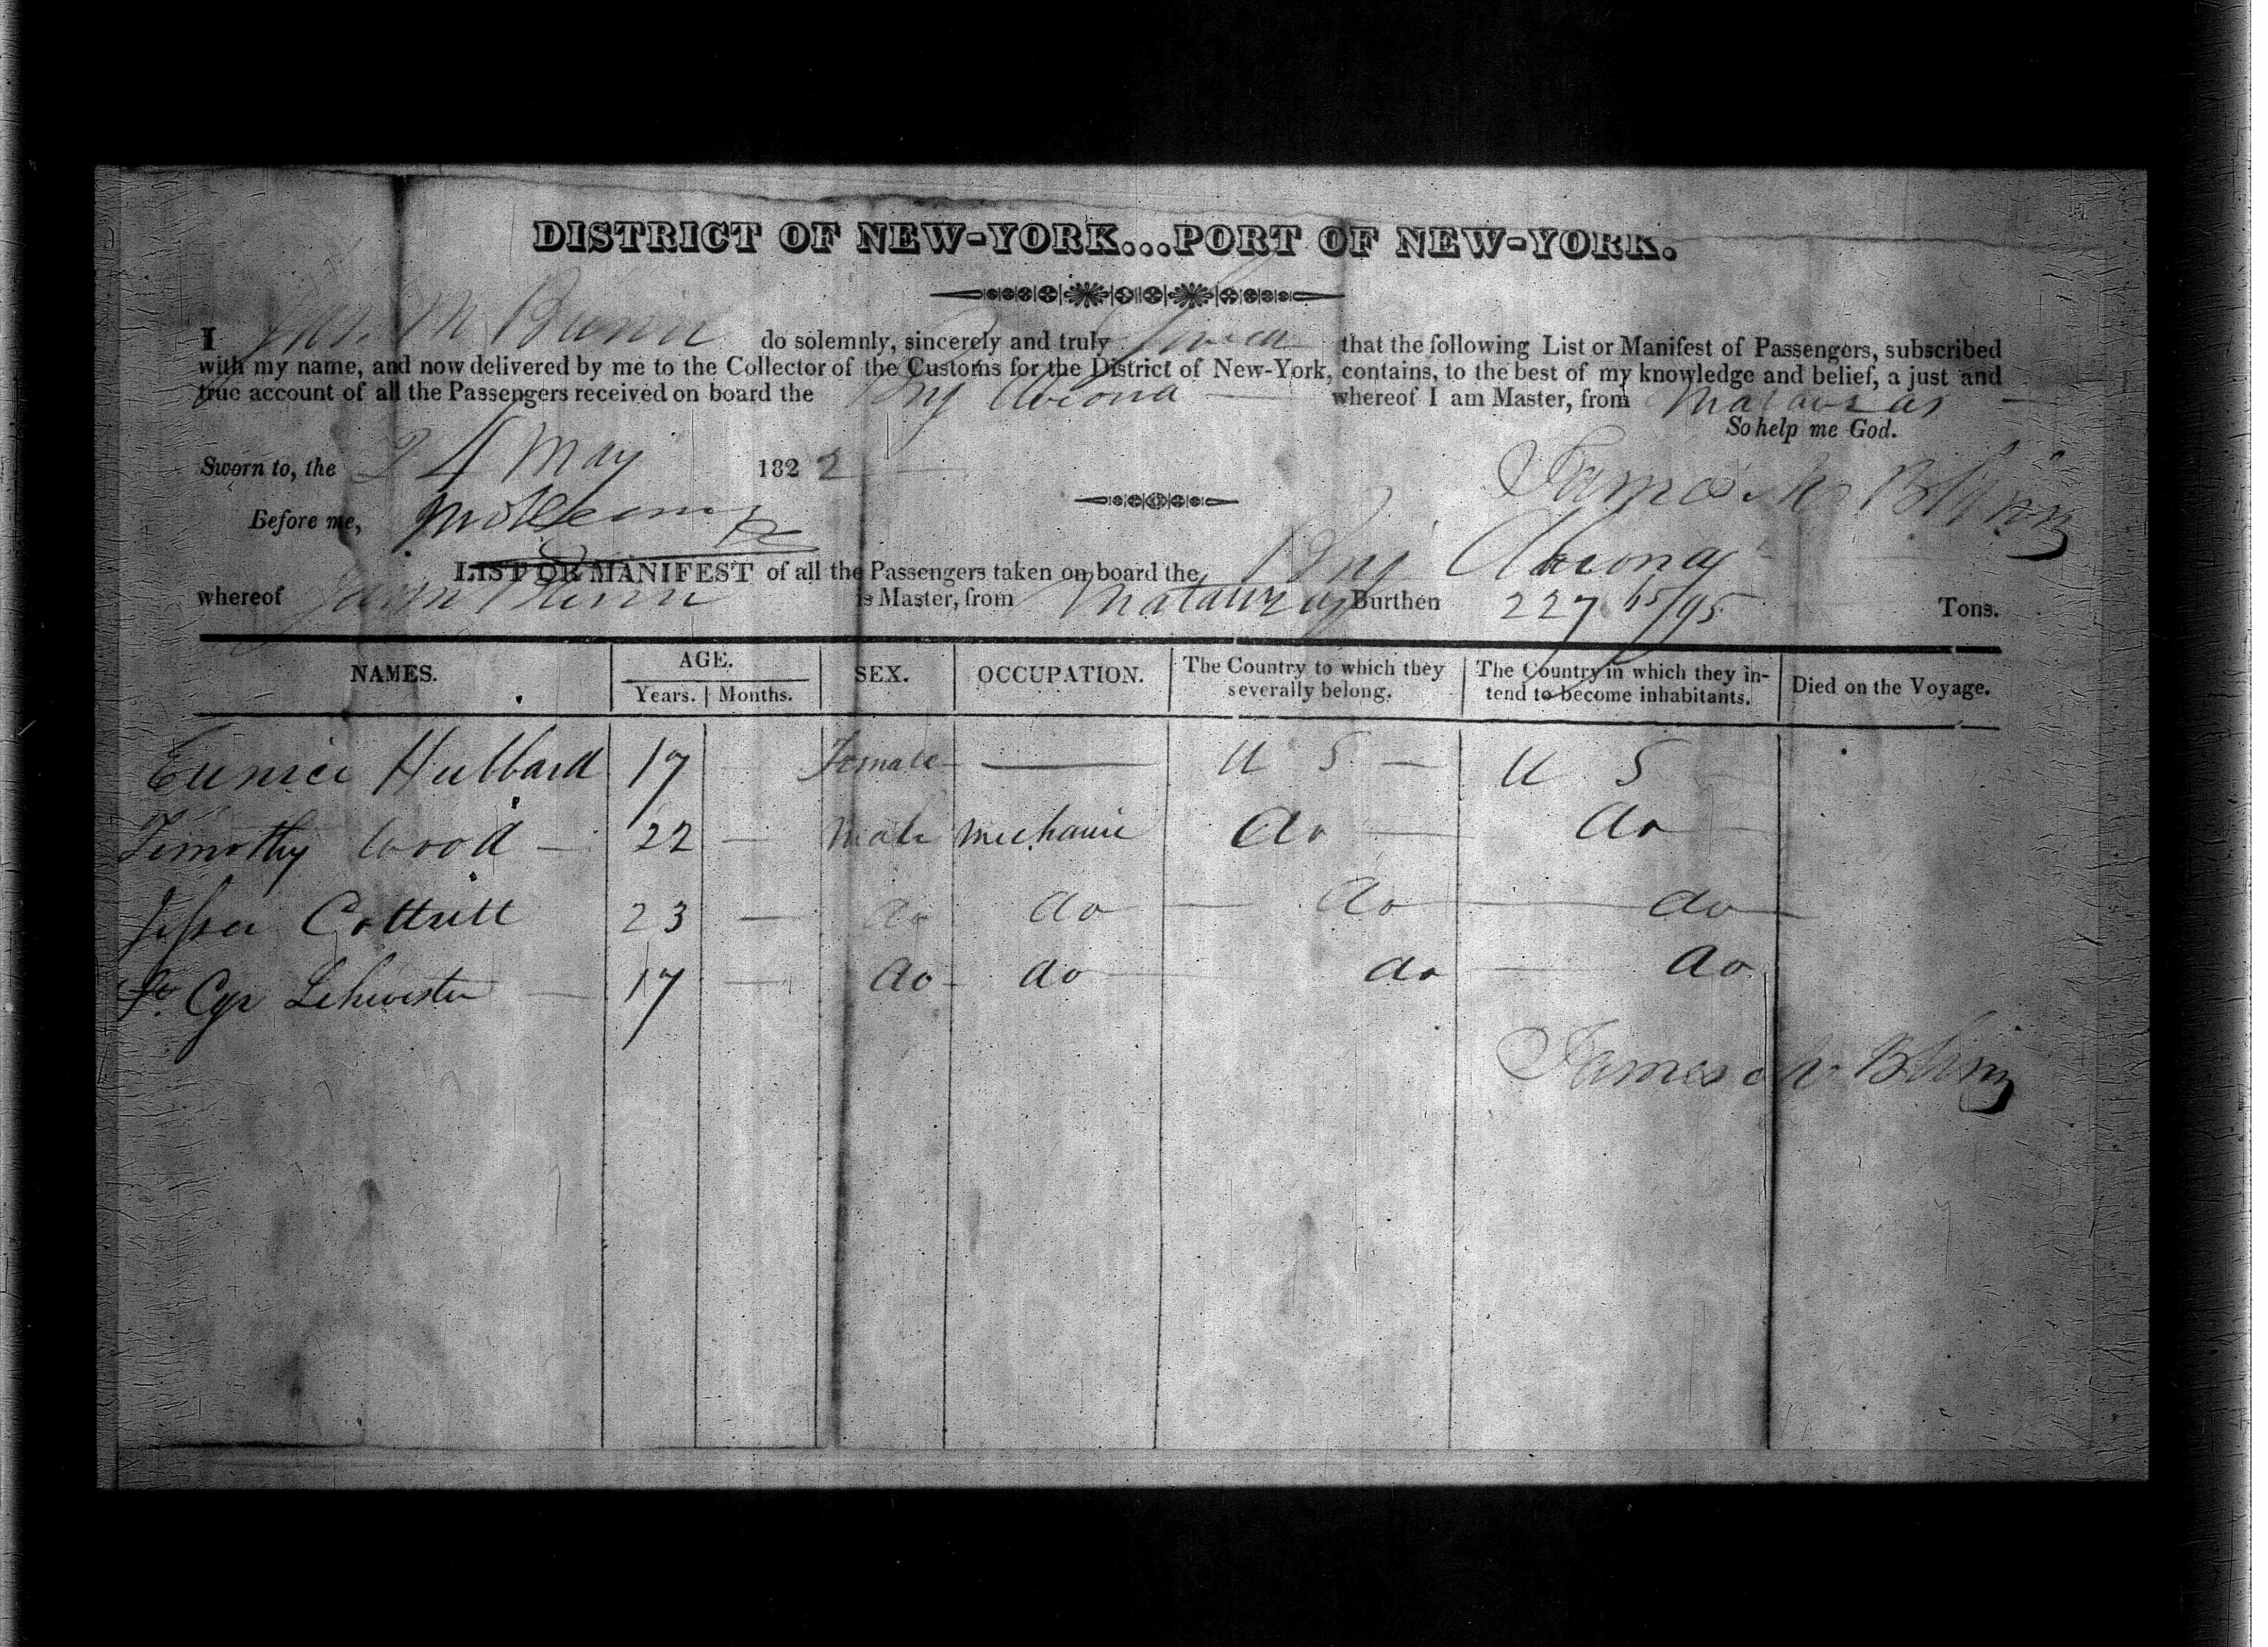 DISTRICT OF NEW-YORK...PORT OF NEW-YORK.
I Jas. M Blinn do solemnly, sincerely and truly Swear that the following List or Manifest of Passengers, subscribed
with my name, and now delivered by me to the Collector of the Customs for the District of New-York, contains, to the best of my knowledge and belief, a just and
true account of all the Passengers received on board the Brig Abeona whereof I am Master, from Matanzas
So help me God.
Sworn to, the 24 May 1822
James M Blinn
Before me,
LIST OR MANIFEST of all the Passengers taken on board the Brig Abeona
whereof James Blinn is Master, from Matanzas Burthen 227 65/95 Tons.
NAMES. AGE. Years. Months. SEX. OCCUPATION. The Country to which they severally belong. The Country in which they intend to become inhabitants. Died on the Voyage.
Eunice Hubbard 17 — Female — U S — U S
Timothy Wood — 22 — Male Mechanic do do
Jesse Cottrell 23 — do do do do
St Cyr 17 — do do do do
James M Blinn